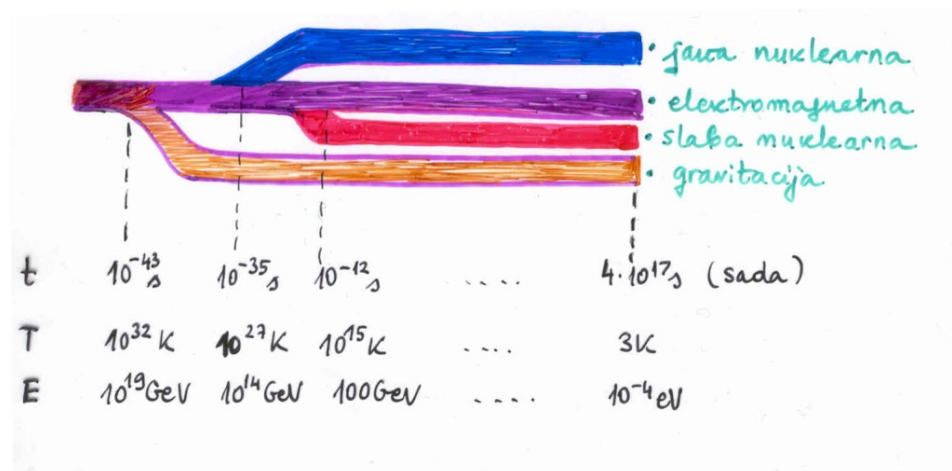 • jaka nuklearna
• elektromagnetna
• slaba nuklearna
• gravitacija
t 10⁻⁴³s 10⁻³⁵s 10⁻¹²s .... 4·10¹⁷s (sada)
T 10³²K 10²⁷K 10¹⁵K .... 3K
E 10¹⁹GeV 10¹⁴GeV 100GeV .... 10⁻⁴eV